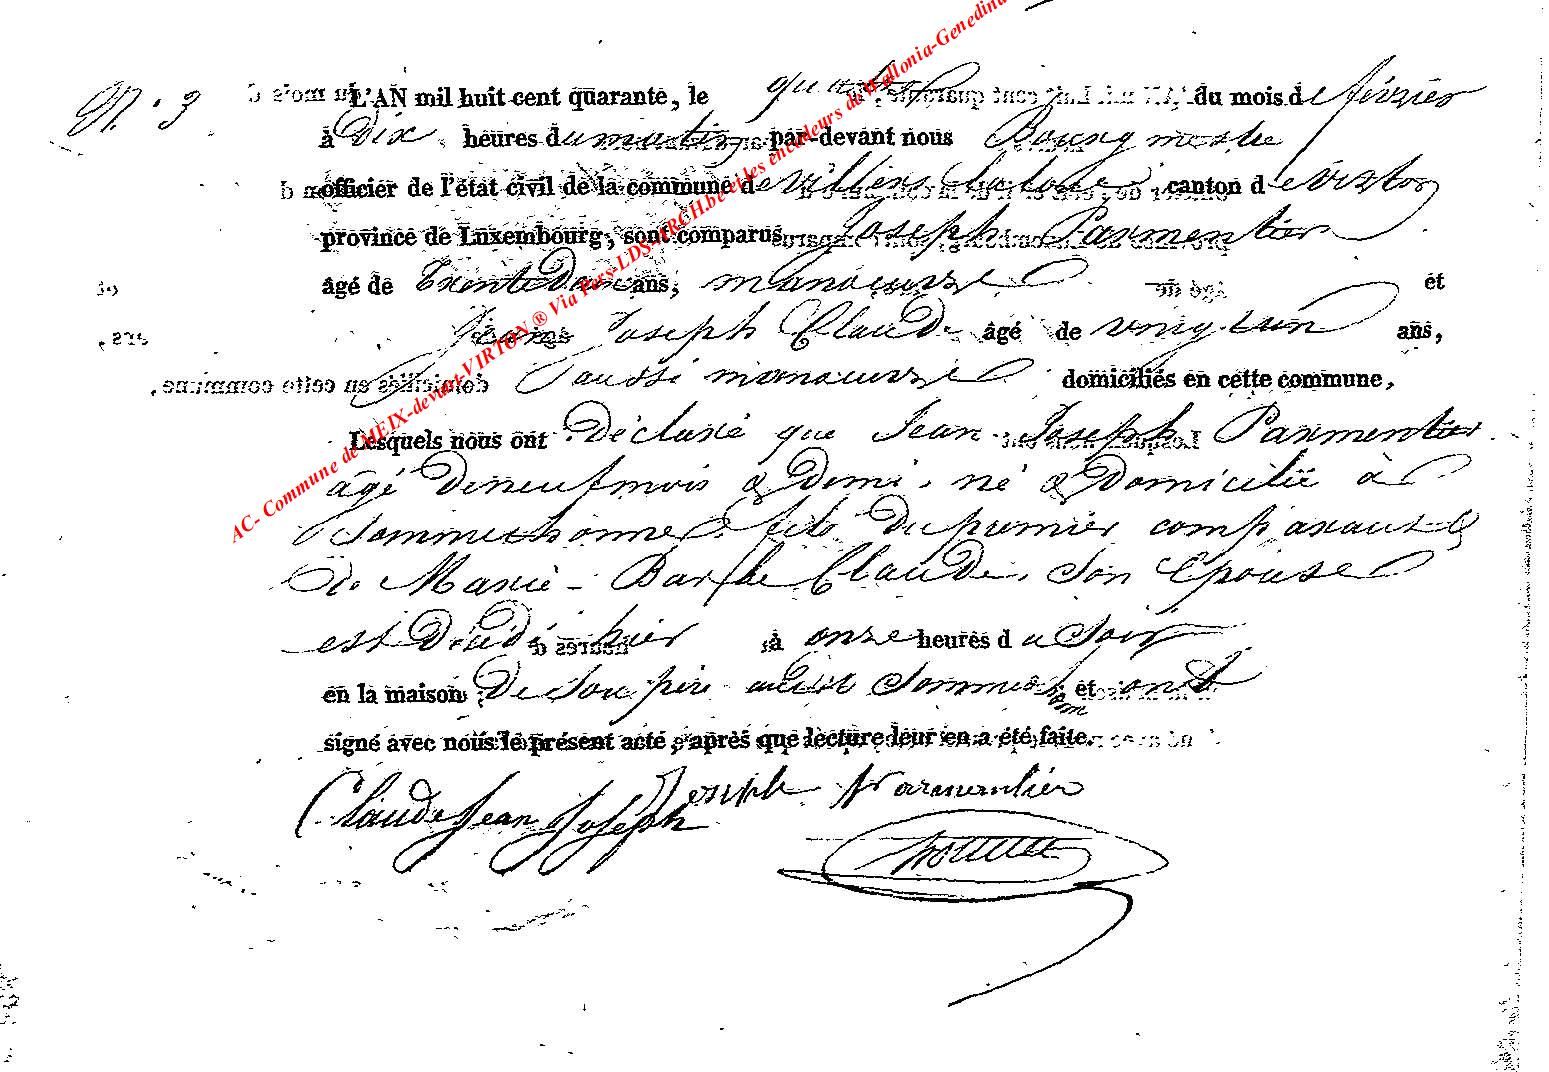 N. 3
L'AN mil huit cent quarante, le quatre du mois de février
à Dix heures du matin par-devant nous Bourgmestre
officier de l'état civil de la commune de villers la loue canton de virton
province de Luxembourg, sont comparus Joseph Parmentier
âgé de trente Deux ans, manœuvre et
Jean Joseph Claude âgé de vingt un ans,
aussi manœuvre domiciliés en cette commune,
Lesquels nous ont Déclaré que Jean Joseph Parmentier
âgé De neuf mois & Demi, né & Domicilié à
Sommethonne, fils Du premier comparant &
de Marie Barbe Claude, son Epouse
est Décédé hier à onze heures du Soir
en la maison De Son père audit Sommethonne et ont
signé avec nous le présent acte, après que lecture leur en a été faite.
Joseph Parmentier
Claude Jean Joseph
AC- Commune de MEIX-devant-VIRTON ® Via Pers-LDS-ARCH.be et les encodeurs de Wallonia-Genedinum